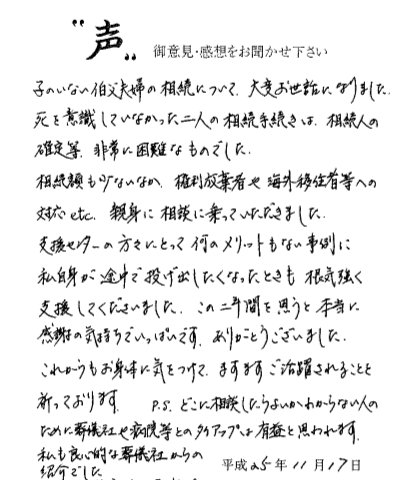 "声" 御意見・感想をお聞かせ下さい
子のいない伯父夫婦の相続について、大変お世話になりました。
死を意識していなかった二人の相続手続きは、相続人の
確定等、非常に困難なものでした。
相続額も少ないなか、権利放棄者や海外移住者等への
対応etc. 親身に相談に乗っていただきました。
支援センターの方々にとって何のメリットもない事例に
私自身が途中で投げ出したくなったときも根気強く
支援してくださいました。この二年間を思うと本当に
感謝の気持ちでいっぱいです。ありがとうございました。
これからもお身体に気をつけて、ますますご活躍されることを
祈っております。 P.S. どこに相談したらよいかわからない人の
ために葬儀社や病院等とのタイアップは有益と思われます。
私も良心的な葬儀社からの
紹介でした
平成25年11月17日